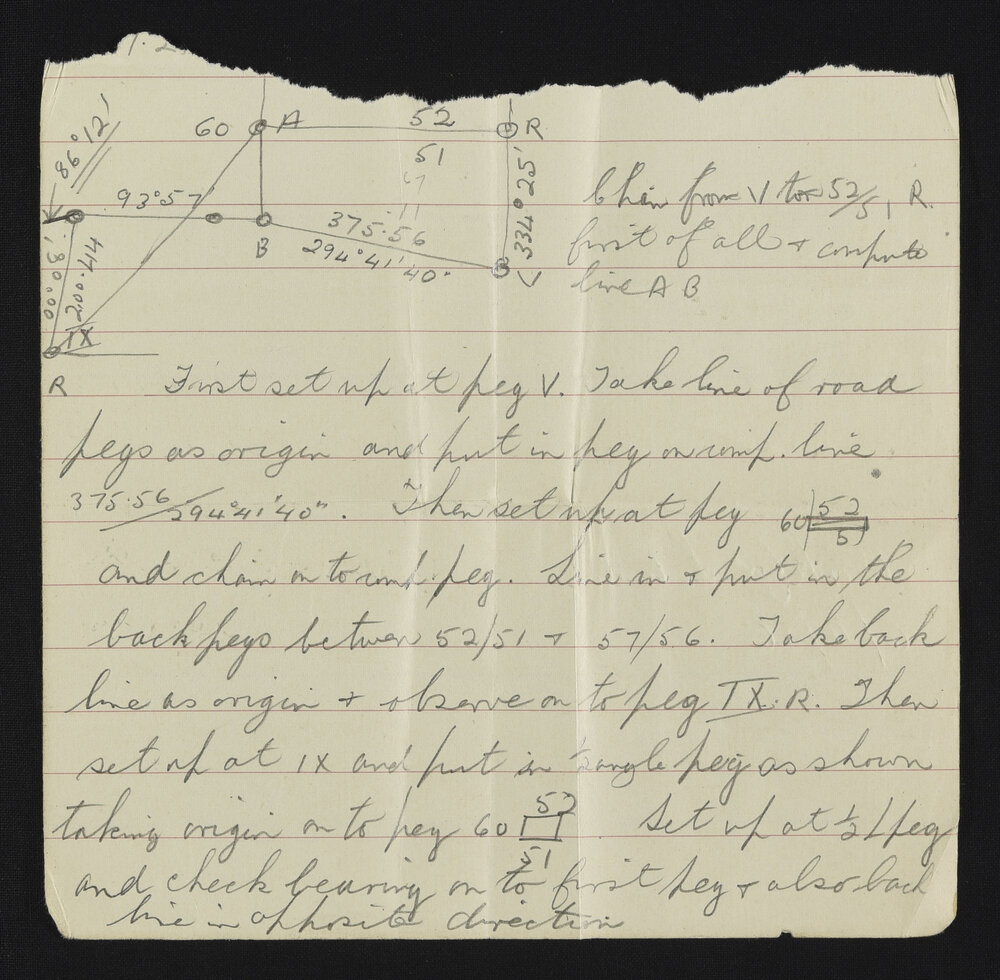 60 A 52 R
51
86°12'
93°57'
375.56
B
294°41'40"
334°25'
V
200.44
IX
R
Chain from V to 52/51 R.
first of all + compute
line A B
First set up at peg V. Take line of road
pegs as origin and put in peg on comp. line
375.56/294°41'40". Then set up at peg 60 52
51
and chain on to comp. peg. Line in + put in the
back pegs between 52/51 + 57/56. Take back
line as origin + observe on to peg IX.R. Then
set up at IX and put in angle peg as shown
taking origin on to peg 60 52
51
. Set up at ½ peg
and check bearing on to first peg + also back
line in opposite direction